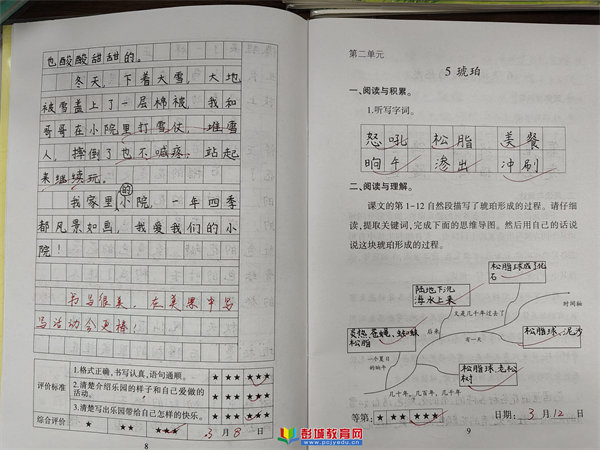 也酸酸甜甜的。
冬天，下着大雪，大地
被雪盖上了一层棉被，我和
哥哥在小院里打雪仗，堆雪
人，摔倒了也不喊疼，站起
来继续玩。
我家里的小院，一年四季
都风景如画，我爱我们的小
院！
书写很美，在美景中写
写活动会更棒！
评价标准
1.格式正确，书写认真，语句通顺。
2.清楚介绍乐园的样子和自己爱做的
活动。
3.清楚写出乐园带给自己怎样的快乐。
综合评价
3月8日
8
第二单元
5 琥珀
一、阅读与积累。
1.听写字词。
怒吼 松脂 美餐
晌午 渗出 冲刷
二、阅读与理解。
课文的第1-12自然段描写了琥珀形成的过程。请仔细
读，提取关键词，完成下面的思维导图。然后用自己的话说
说这块琥珀形成的过程。
松脂球成了化
石
陆地下沉
海水上来
时间轴
又是几千年过去了
松脂
后来
松脂球、泥沙
有一天
一个夏日
的晌午
松脂球、老松
树
几十年，几百年，几千年
等第：
日期：3月12日
9
彭城教育网
www.pcjyedu.cn